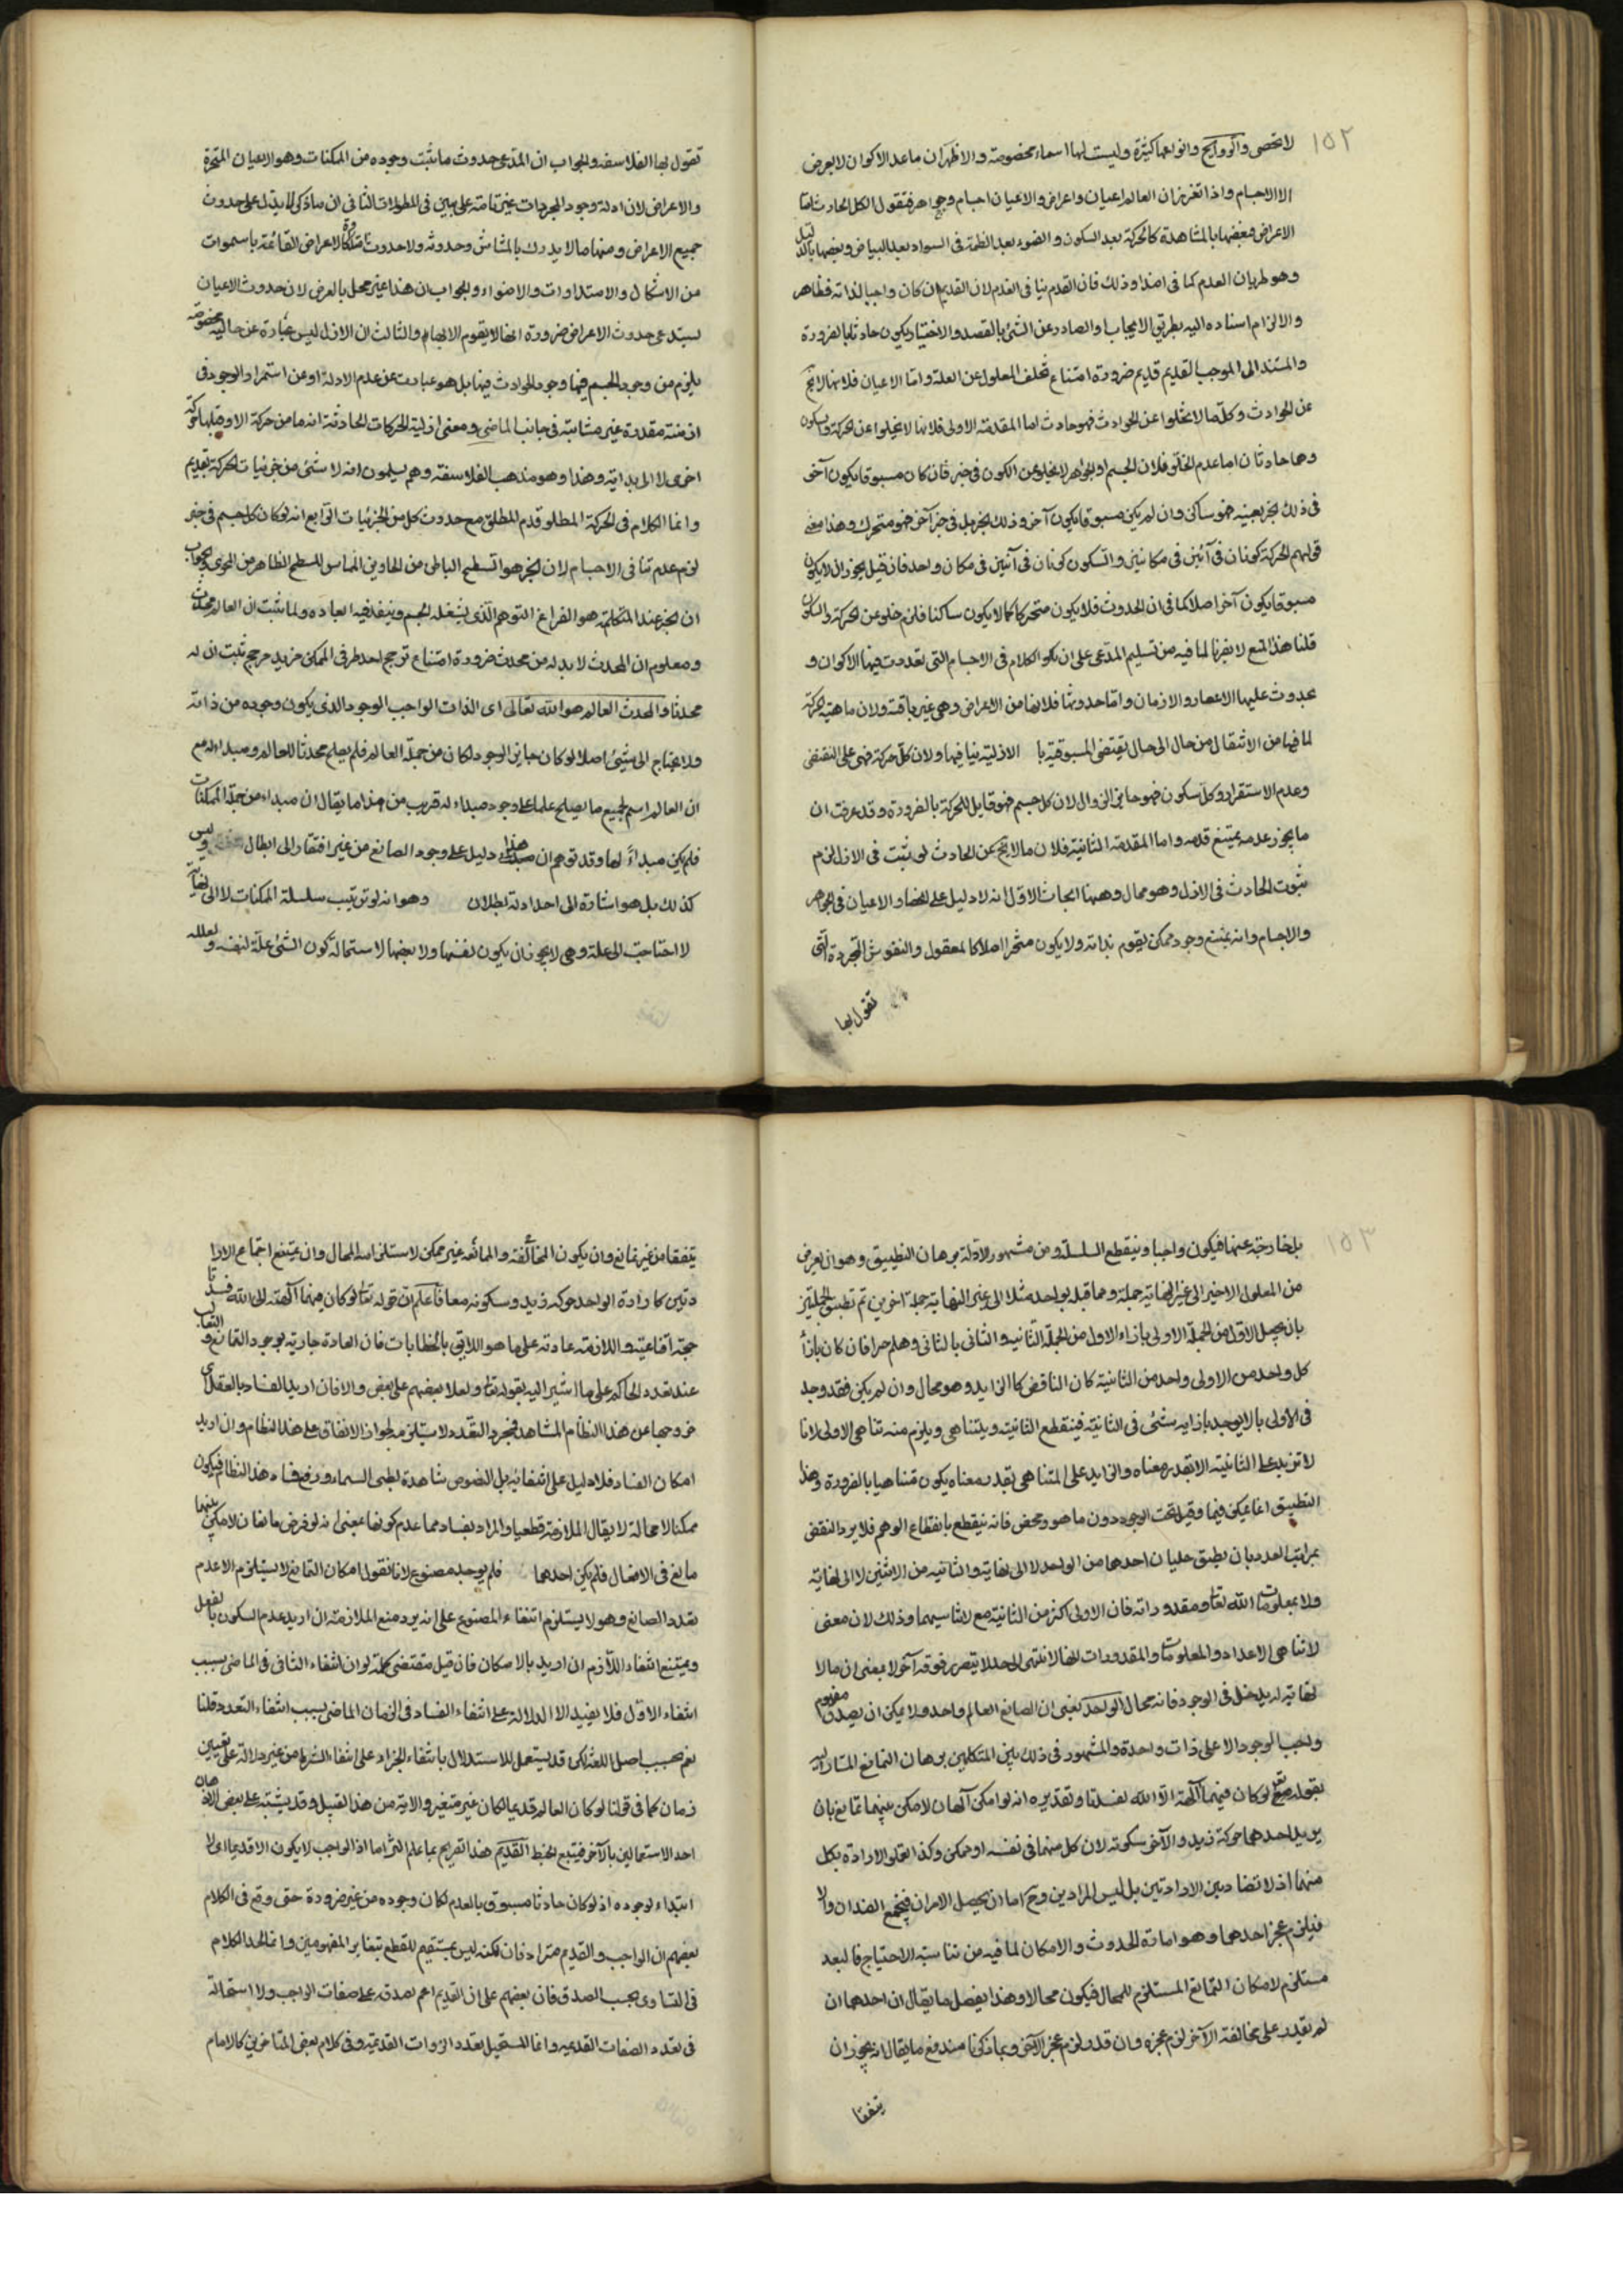 ١٥٢
لا تحصى والروايح وانواعها كثيرة وليست لها اسماء مخصوصة والاظهر ان ماعدا الاكوان لا يعرض
الا الاجسام واذا تقرر ان العالم اعيان واعراض والاعيان اجسام وجواهر فنقول الكل الحادث اما
الاعراض فبعضها بالمشاهدة كالحركة بعد السكون والضوء بعد الظلمة فى السواد بعد البياض وبعضها بالدليل
وهو طريان العدم كما فى اضداد ذلك فان القدم ينافى العدم لان القديم ان كان واجبا لذاته فظاهر
والا لزم اسناده اليه بطريق الايجاب والصادر عن الشئ بالقصد والاختيار يكون حادثا بالضرورة
والمستند الى الموجب القديم قديم ضرورة امتناع تخلف المعلول عن العلة واما الاعيان فلانها لا تخ
عن الحوادث وكل ما لا يخلوا عن الحوادث فهو حادث اما المقدمة الاولى فلانها لا يخلوا عن الحركة والسكون
وهما حادثان اما عدم الخلو فلان الجسم او الجواهر لا يخلو عن الكون فى حيز فان كان مسبوقا بكون آخر
فى ذلك الحيز بعينه فهو ساكن وان لم يكن مسبوقا بكون آخر وذلك الحيز بل فى حيز آخر فهو متحرك وهذا معنى
قولهم الحركة كونان فى آنين فى مكانين والسكون كونان فى آنين فى مكان واحد فان قيل يجوز ان لا يكون
مسبوقا بكون آخر اصلا كما فى ان الحدوث فلا يكون متحركا كما لا يكون ساكنا فلزم خلو عن الحركة والسكون
قلنا هذا المنع لا يضرنا لما فيه من تسليم المدعى على ان الكلام فى الاجسام التى تعددت فيها الاكوان و
تجدوث عليها الاعصار والازمان واما حدوثها فلانها من الاعراض وهى غير باقية ولان ماهية الحركة
لما فيها من الانتقال من حال الى حال يقتضى المسبوقية با الازلية ينافيها ولان كل حركة فهى على التقضى
وعدم الاستقرار وكل سكون فهو جايز الزوال لان كل جسم فهو قابل للحركة بالضرورة وقد عرفت ان
ما يجوز عدمه يمتنع قدمه واما المقدمة الثانية فلان ما لا يخ عن الحادث لو يثبت فى الازل لزم
ثبوت الحادث فى الازل وهو محال وههنا ابحاث الاول انه لا دليل على انحصار الاعيان فى الجواهر
والاجسام وانه يمتنع وجود ممكن يقوم بذاته ولا يكون متحيزا اصلا كالمعقول والنفوس المجردة التى
تقول بها
تقول بها الفلاسفه والجواب ان المدعى حدوث ما ثبت وجوده من الممكنات وهو الاعيان المتحيزة
والاعراض لان ادلة وجود المجردات غير تامة على بين فى المطولات الثانى ان ماذكر لا يدل على حدوث
جميع الاعراض ومنها ما لا يدرك بالمشاش وحدوثه ولا حدوث الاعراض القائمة باسموات
من الاشكال والامتدادات والاضواء والجواب ان هذا غير مخل بالغرض لان حدوث الاعيان
يستدعى حدوث الاعراض ضرورة انها لا يقوم الا بها والثالث ان الازل ليس عبارة عن حالة مخصوصة
يلزم من وجود الجسم فيها وجود الحوادث فيها بل هو عبارت عن عدم الاولة او عن استمرار الوجود فى
ازمنة مقدرة غير متناهية فى جانب الماضى ومعنى ازلية الحركات الحادثة انه ما من حركة الا وقبلها حركة
اخرى لا الى بداية وهذا وهو مذهب الفلاسفة وهم يسلمون انه لا شئ من جزئيات الحركة بقديم
وانما الكلام فى الحركة المطلق قدم المطلق مع حدوث كل من الجزئيات الرابع انه لو كان كل جسم فى حيز
لزم عدم تنافى الاجسام لان الحيز هو السطح الباطن من الحاوى المماس للسطح الظاهر من المحوى والجواب
ان الحيز عند المتكلمة هو الفراغ المتوهم الذى يشغله الجسم وينفذ فيه ابعاده ولما ثبت ان العالم محدث
ومعلوم ان المحدث لا بد له من محدث ضرورة امتناع ترجح احد طرفى الممكن من غير مرجح ثبت ان له
محدثا والمحدث العالم هو الله تعالى اى الذات الواجب الوجود الذى يكون وجوده من ذاته
ولا يحتاج الى شيئ اصلا لو كان جايز الوجود لكان من جملة العالم فلم يصلح محدثا للعالم ومبداء له مع
ان العالم اسم لجميع ما يصلح علما على وجود مبداء له قريب من هذا ما يقال ان مبداء من جملة الممكنات
فلم يكن مبداءً لها وقد توهم ان هذا دليل على وجود الصانع من غير افتقار الى ابطال وليس
كذلك بل هو اشارة الى احد ادلة بطلان وهو انه لو ترتيب سلسلة الممكنات لا الى نهاية
لا احتاجت الى علة وهى لا يجوز ان يكون نفسها ولا بعضها لاستحالة كون الشئ علة لنفسه ولعلله
١٥٣
بل خارجة عنها فيكون واجبا وينقطع السلسلة ومن مشهور الادلة برهان التطبيق وهو ان يعرض
من المعلول الاخير الى غير النهاية جملة ومما قبله بواحد مثلا الى غير النهاية جملة اخرى ثم تطبق الجملتين
بان يجعل الاول من الجملة الاولى بازاء الاول من الجملة الثانية والثانى بالثانى وهلم جرا فان كان بازاء
كل واحد من الاولى واحد من الثانية كان الناقص كالزايد وهو محال وان لم يكن فقد وجد
فى الاولى بالا يوجد بازايه شئ فى الثانية فينقطع الثانية ويتناهى ويلزم منه تناهى الاولى لانا
لا تزيد على الثانية الا بقدر معناه والزايد على المتناهى بقدر معناه يكون متناهيا بالضرورة وهذا
التطبيق انما يمكن فيما دخل تحت الوجود دون ما هو وهمى محض فانه ينقطع بانقطاع الوهم فلا يرد النقض
بمراتب العدد بان يطبق جليان احدهما من الواحد لا الى نهاية والثانية من الاثنين لا الى نهاية
ولا بمعلومات الله تعا ومقدوراته فان الاولى اكثر من الثانية مع لاتناهيهما وذلك لان معنى
لاتناهى الاعداد والمعلومات والمقدورات انها لا تنتهى الى حد لا يتصور فوقه آخر لا بمعنى ان ما لا
نهاية له يدخل فى الوجود فانه محال الواحد يعنى ان الصانع العالم واحد ولا يمكن ان يصدق مفهوم
واجب الوجود الا على ذات واحدة والمشهور فى ذلك بين المتكلمين برهان التمانع المشار اليه
بقوله تعا لو كان فيهما آلهة الا الله لفسدتا وتقديره انه لو امكن آلهان لامكن بينهما تمانع بان
يريد احدهما حركة زيد والآخر سكونه لان كل منهما فى نفسه امر ممكن وكذا تعلق الارادة بكل
منهما اذ لا تضاد بين الارادتين بل ليس المرادين وح اما ان يحصل الامران فيجتمع الضدان والا
فيلزم عجز احدهما وهو امارة الحدوث والامكان لما فيه من شائبة الاحتياج فالتعدد
مستلزم لامكان التمانع المستلزم للمحال فيكون محالا وهذا تفصيل ما يقال ان احدهما ان
لم يقدر على مخالفة الآخر لزم عجزه وان قدر لزم عجز الآخر وبما ذكرنا مندفع ما يقال انه يجوز ان
يتفقا
يتفقا من غير تمانع وان يكون المخالفة والممانعة غير ممكن لاستلزامه المحال وان يمتنع اجتماع الارا
دتين كارادة الواحد حركة زيد وسكونه معا فاعلم ان قوله تعا لو كان فيهما آلهة الا الله لفسدتا
حجة اقناعية والملازمة عادته على ما هو اللايق بالخطابات فان العادة جارية بوجود التمانع والتغالب
عند تعدد الحاكم على ما اشير اليه بقوله تعا ولعلا بعضهم على بعض والا فان اريد الفساد بالفعل اى
خروجها عن هذا النظام المشاهد فمجرد التعدد لا يستلزمه لجواز الاتفاق على هذا النظام وان اريد
امكان الفساد فلا دليل على انتفائه بل النصوص شاهدة بطى السماء ورفع هذا النظام فيكون
ممكنا لا محالة لا يقال الملازمة قطعية والمراد بفسادهما عدم كونها بمعنى انه لو فرض مانعان لامكن بينهما
مانع فى الافعال فلم يكن احدهما فلم يوجد مصنوع لانا نقول امكان التمانع لا يستلزم الا عدم
تعدد الصانع وهو لا يستلزم انتفاء المصنوع على انه يرد منع الملازمة ان اريد عدم السكون بالفعل
ويمتنع انتفاء اللازم ان اريد بالامكان فان قيل مقتضى كلمة لو ان انتفاء الثانى فى الماضى بسبب
انتفاء الاول فلا يفيد الا الدلالة على انتفاء الفساد فى الزمان الماضى بسبب انتفاء التعدد قلنا
نعم بحسب اصل اللغة لكن قد يستعمل للاستدلال بانتفاء الجزاء على انتفاء الشرط من غير دلالة على تعيين
زمان كما فى قولنا لو كان العالم قديما لكان غير متغير والاية من هذا القبيل وقد يشتبه على بعض الاذهان
احد الاستعمالين بالآخر فيتبع الخبط القديم هذا تصريح بما علم التزاما اذ الواجب لا يكون الا قديما اى لا
ابتداء لوجوده اذ لو كان حادثا مسبوق بالعدم لكان وجوده من غيره ضرورة حتى وقع فى الكلام
بعضهم ان الواجب والقديم مترادفان لكنه ليس بمستقيم للقطع بتغاير المفهومين وانما الكلام
فى التساوى بحسب الصدق فان بعضهم على ان القديم اعم بصدقه على صفات الواجب ولا استحالة
فى تعدد الصفات القديمه وانما المستحيل تعدد الذوات القديمة وفى كلام بعض المتاخرين كالامام